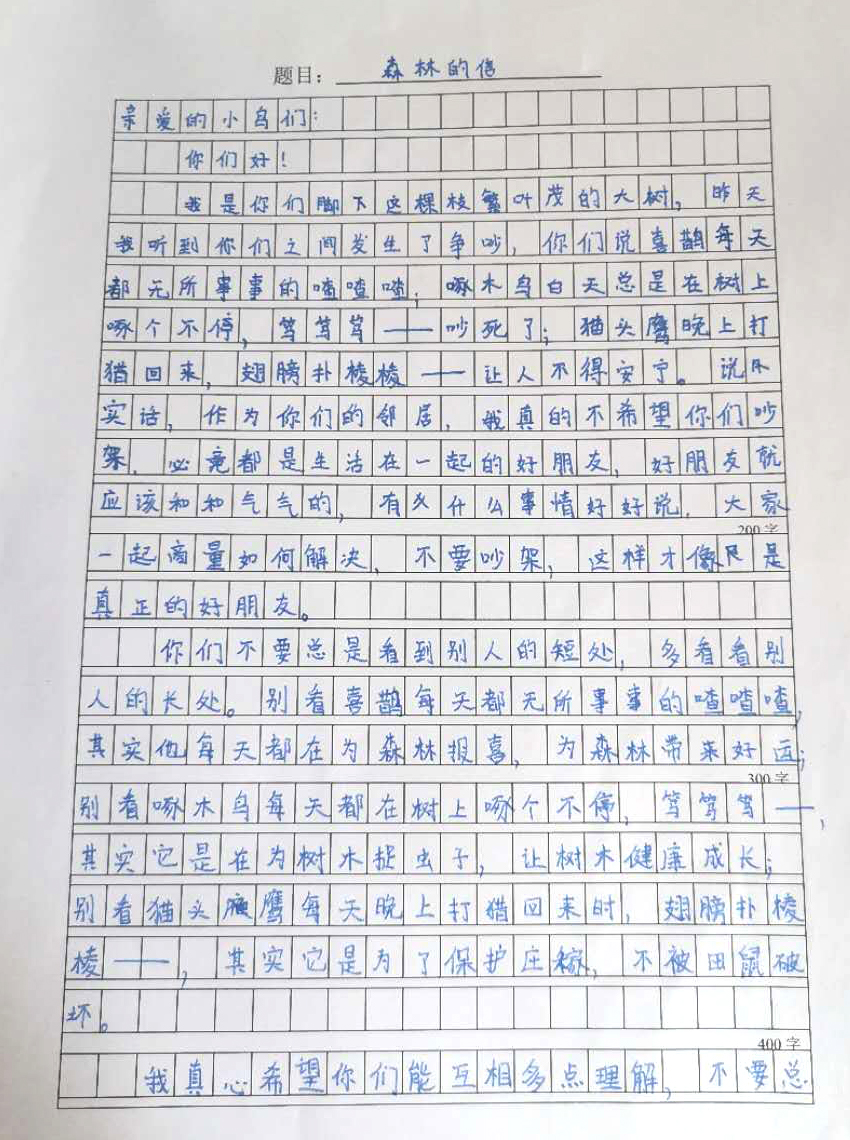 题目：森林的信
亲爱的小鸟们：
你们好！
我是你们脚下这棵枝繁叶茂的大树，昨天
我听到你们之间发生了争吵，你们说喜鹊每天
都无所事事的喳喳喳；啄木鸟白天总是在树上
啄个不停，笃笃笃——吵死了；猫头鹰晚上打
猎回来，翅膀扑棱棱——让人不得安宁。说
实话，作为你们的邻居，我真的不希望你们吵
架．必竟都是生活在一起的好朋友，好朋友就
应该和和气气的，有什么事情好好说．大家
200字
一起商量如何解决，不要吵架，这样才像是
真正的好朋友。
你们不要总是看到别人的短处，多看看别
人的长处。别看喜鹊每天都无所事事的喳喳喳，
其实他每天都在为森林报喜，为森林带来好运；
300字
别看啄木鸟每天都在树上啄个不停，笃笃笃——，
其实它是在为树木捉虫子，让树木健康成长；
别看猫头鹰每天晚上打猎回来时，翅膀扑棱
棱——，其实它是为了保护庄稼，不被田鼠破
坏。
400字
我真心希望你们能互相多点理解，不要总